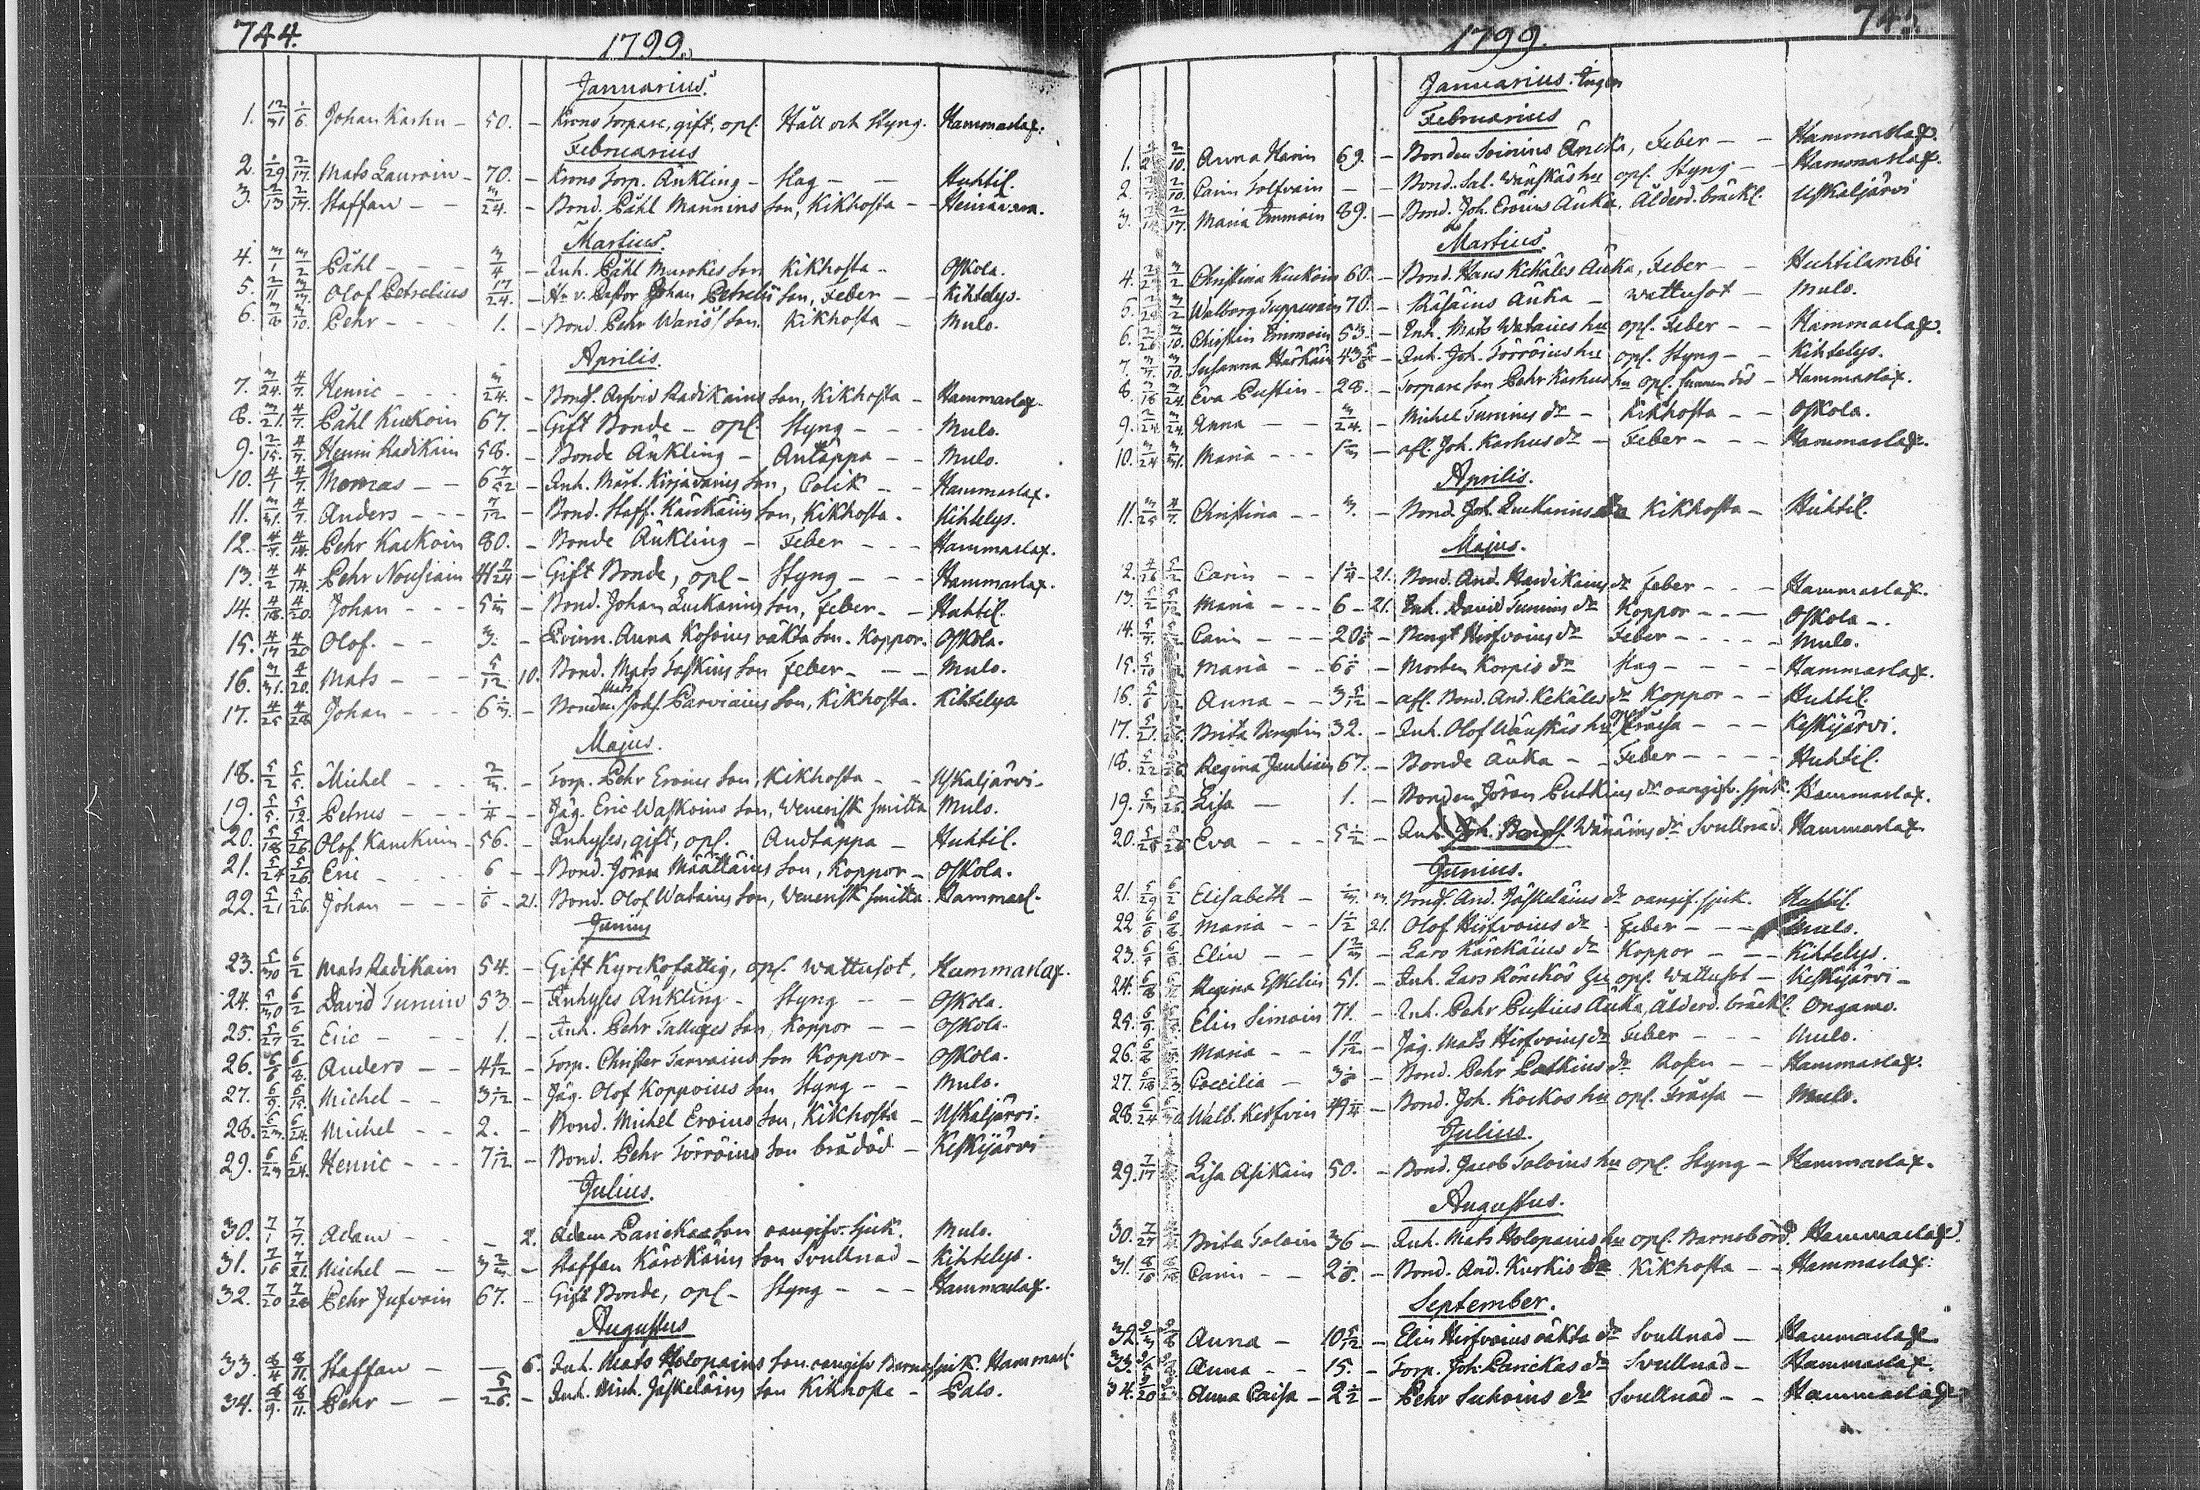 744.
1799.
Januarius.
1. 12/31 1/6. Johan Karhu - 50. - Krono Torpare, gift, opl. Håll och Styng. Hammaslax.
Februarius
2. 1/29. 2/17. Mats Laurain - 70. - Krono Torp. Änkling - Slag - - Huhtil.
3. 2/13 2/17. Staffan - - 3/24. - Bond. Påhl Mannins Son, Kikhosta - -
Martius.
4. 3/1 3/2 Påhl - - - 3/4 - Inh. Påhl Murokes Son Kikhosta - Oskola.
5. 2/11 3/3. Olof Petrelius 17/24. - Hr v. Pastor Johan Petrelii Son, Feber - - Kihtelys.
6. 3/10. Pehr - - - 1. - Bond. Pehr Waris Son Kikhosta - Mulo.
Aprilis.
7. 3/24. 4/7. Henric - - - 3/24. - Bond. Arfvid Radikains Son, Kikhosta - Hammaslax.
8. 3/21. 4/7. Påhl Kuckoin 67. - Gift Bonde - opl. Styng - - - Mulo.
9. 2/15. 4/7. Henric Radikain 58. - Bonde Änkling - Antäppa - - Mulo.
10. 4/1 4/7. Thomas - - 6 7/52 - Inh. Mårt. Kirjavains Son, Colik - - Hammaslax.
11. 3/31. 4/7. Anders - - - 7/12 - Bond. Staff. Kärckäins Son, Kikhosta. Kihtelys.
12. 4/7. 4/14. Pehr Kackoin 80. - Bonde Änkling - Feber - - - Hammaslax.
13. 4/2 4/14. Pehr Nousiain 41 7/24 - Gift Bonde, opl - Styng - - - Hammaslax.
14. 4/18. 4/20. Johan - - - 5 1/3 - Bond. Johan Luckarins Son, Feber - - Huhtil.
15. 4/17 4/20 Olof. - - 3. - Qvinn. Anna Kosoins oäkta Son. Koppor. Oskola.
16. 3/31. 4/20. Mats - - - 5/12. 10. Bond. Mats Taskins Son Feber - - - Mulo.
17. 4/25 4/28 Johan - - - 6 1/3. - Bonden Mats Johs. Parviains Son, Kikhosta. Kihtelys
Majus.
18. 5/2 5/5. Michel - - - 2/3. - Torp. Pehr Eroins Son, Kikhosta - - Uskaljärvi -
19. 5/5. 5/12. Petrus - - - 1/4 - - Jäg. Eric Waskoins Son, Venerisk smitta Mulo.
20. 5/18 5/26. Olof Kanckuin - 56. - Inhyses, gift, opl. Andtäppa - Huhtil.
21. 5/24 5/26. Eric - - - 6 - - Bond. Jöran Määttäins Son, Koppor - Oskola.
22. 5/21 5/26. Johan - - - 1/6 - 21. Bond. Olof Watains Son, Venerisk smitta Hammasl.
Junius
23. 5/30 6/2 Mats Radikain 54. - Gift Kyrckofattig, opl. Wattusot. Hammaslax.
24. 5/30 6/2 David Turuin 53 - Inhyses Änkling - Styng - - Oskola.
25. 5/27 6/2 Eric - - - 1. - Inh. Pehr Son, Koppor - - Oskola.
26. 6/6 6/8. Anders - - 4 4/12 - Torp. Christer Tarvains Son Koppor - Oskola.
27. 6/9. 6/15. Michel - - 3 1/12 - Jäg. Olof Koppoius Son Styng - - Mulo.
28. 6/23. 6/24. Michel - - 2. - Bond. Michel Eroins Son, Kikhosta - Uskaljärvi.
29. 6/23 6/24. Henric - - - 7 1/12 - Bond. Pehr Törröins Son brådöd - Keskijärvi
Julius.
30. 7/1 7/7. Adam - - - 2. Adam Panickaa Son oangifv. Sjuk. Mulo.
31. 7/16 7/21. Michel - - 3 2/3. - Staffan Kärckäins Son Svullnad - Kihtelys.
32. 7/20 7/28 Pehr Jufvain 67. - Gift Bonde, opl - Styng - - - Hammaslax.
Augustus
33. 8/4 8/11. Staffan - - 6. Inh. Mats Holopains Son oangifv Barnasjuk. Hammasl.
34. 8/9. 8/11. Pehr - - 5/26. - Inh. Mich. Jäskeläins Son Kikhosta - Palo.
745.
1799.
Januarius. Ingen
Februarius
1. 2/10. Anna Harin 69. - Bonden Soinins Äncka, Feber - - Hammaslax.
2. 2/10. Carin Tolfvain - - Bond. Sal. Wänskäs hu opl. Styng - - Hammaslax.
3. 2/17. Maria Immoin 89. - Bond. Joh. Eroins Änka, Ålderd. bräckl. Uskaljärvi
Martius.
4. 3/2 Christina Kuckoin 60. - Bond. Hans Kekäles Änka, Feber - - Huhtilambi
5. 3/2 Walborg Tuppurain 70. - Räsäins Änka - Wattusot - Mulo.
6. 2/26 3/10. Christin Immoin 53 - Inh. Mats Watains hu opl. Feber - - Hammaslax.
7. 3/7. 3/10. Susanna Härkäin 43 5/6 - Inh. Joh. Törröins hu opl. Styng - - Kihtelys.
8. 3/16 3/24. Eva Pustin - 28. - Torpare Son Pehr Karhus hu opl. - Hammaslax.
9. 2/24 3/24. Anna - - 3/24. - Michel Turuins dr - Kikhosta - - Oskola.
10. 3/24 3/31. Maria - - - 1 2/3 - afl. Joh. Karhus dr - Feber - - - Hammaslax.
Aprilis.
11. 3/25 4/7. Christina - - 3. - Bond. Joh. Luckarins dr Kikhosta - Huhtil.
Majus.
12. 4/26 5/2 Carin - - 1 1/4 - 21. Bond. And. Hardikains dr Feber - - - Hammaslax.
13. 5/2 5/12 Maria - - - 6 - 21. Inh. David Turuins dr Koppor - - - Oskola -.
14. Carin - - - 20 - Bengt Hirfvoins dr Feber - - - - Mulo.
15. Maria - - 6 1/6 - Morten Korpis dr Slag - - - - Hammaslax.
16. Anna - - 3 5/12 - afl. Bond. And. Kekäles dr Koppor - - Huhtil.
17. Brita Bengtin 32. - Inh. Olof Wänskäs hu opl. Fråssa - - - Keskijärvi.
18. Regina Jauhiain 67. - Bonde Änka - - Feber - - - - Huhtil.
19. Lisa - 1. - Bonden Jöran Putkins dr oangifv. sjuk. Hammaslax.
20. Eva - - - 5 1/2 - Inh. Joh. Bengts. Wänäins dr Svullnad Hammaslax
Junius.
21. 5/29 6/2 Elisabeth - 1/3 3. Bond. And. Jäskeläins dr oangif. sjuk. Huhtil.
22 6/6 6/8 Maria - - 1 1/2 21. Olof Hirfvoins dr - Feber - - - Mulo.
23. Elin - - 1 2/3 - Lars Kärckäins dr Koppor - - - Kihtelys.
24. Regina Eskelin 51. - Inh. Lars Rönckös hu opl. Wattusot - Keskijärvi -
25. 6/9 Elin Simoin 71. - Inh. Pehr Pustins Änka, Ålderd. bräckl. Ongamo.
26. Maria - - 1 7/12 - Jäg. Mats Hirfvoins dr Feber - - - Mulo.
27. Coecilia - 3 1/6 - Bond. Pehr Putkins dr Rosen - - Hammaslax.
28. 6/24 6/30 Walb. Kesfvin 49 1/4 - Bond. Joh. Kockos hu opl. Fråssa - Mulo.
Julius.
29. 7/17 Lisa Asikain 50. - Bond. Jacob Toloins hu opl. Styng - Hammaslax.
Augustus.
30. 7/27 Brita Toloin 36 - Inh. Mats Holopains hu opl. Barnsbörd. Hammaslax.
31. Carin - - 2 1/6. - Bond. And. Kurkis dr Kikhosta - - Hammaslax.
September.
32. Anna - 10 5/12 - Elin Hirfvoins oäkta dr Svullnad - Hammaslax
33. Anna - 15. - Torp. Joh. Panickas dr Svullnad - Hammaslax.
34. Anna Caisa - 2 1/2 - Pehr Suhoins dr Svullnad - - Hammaslax